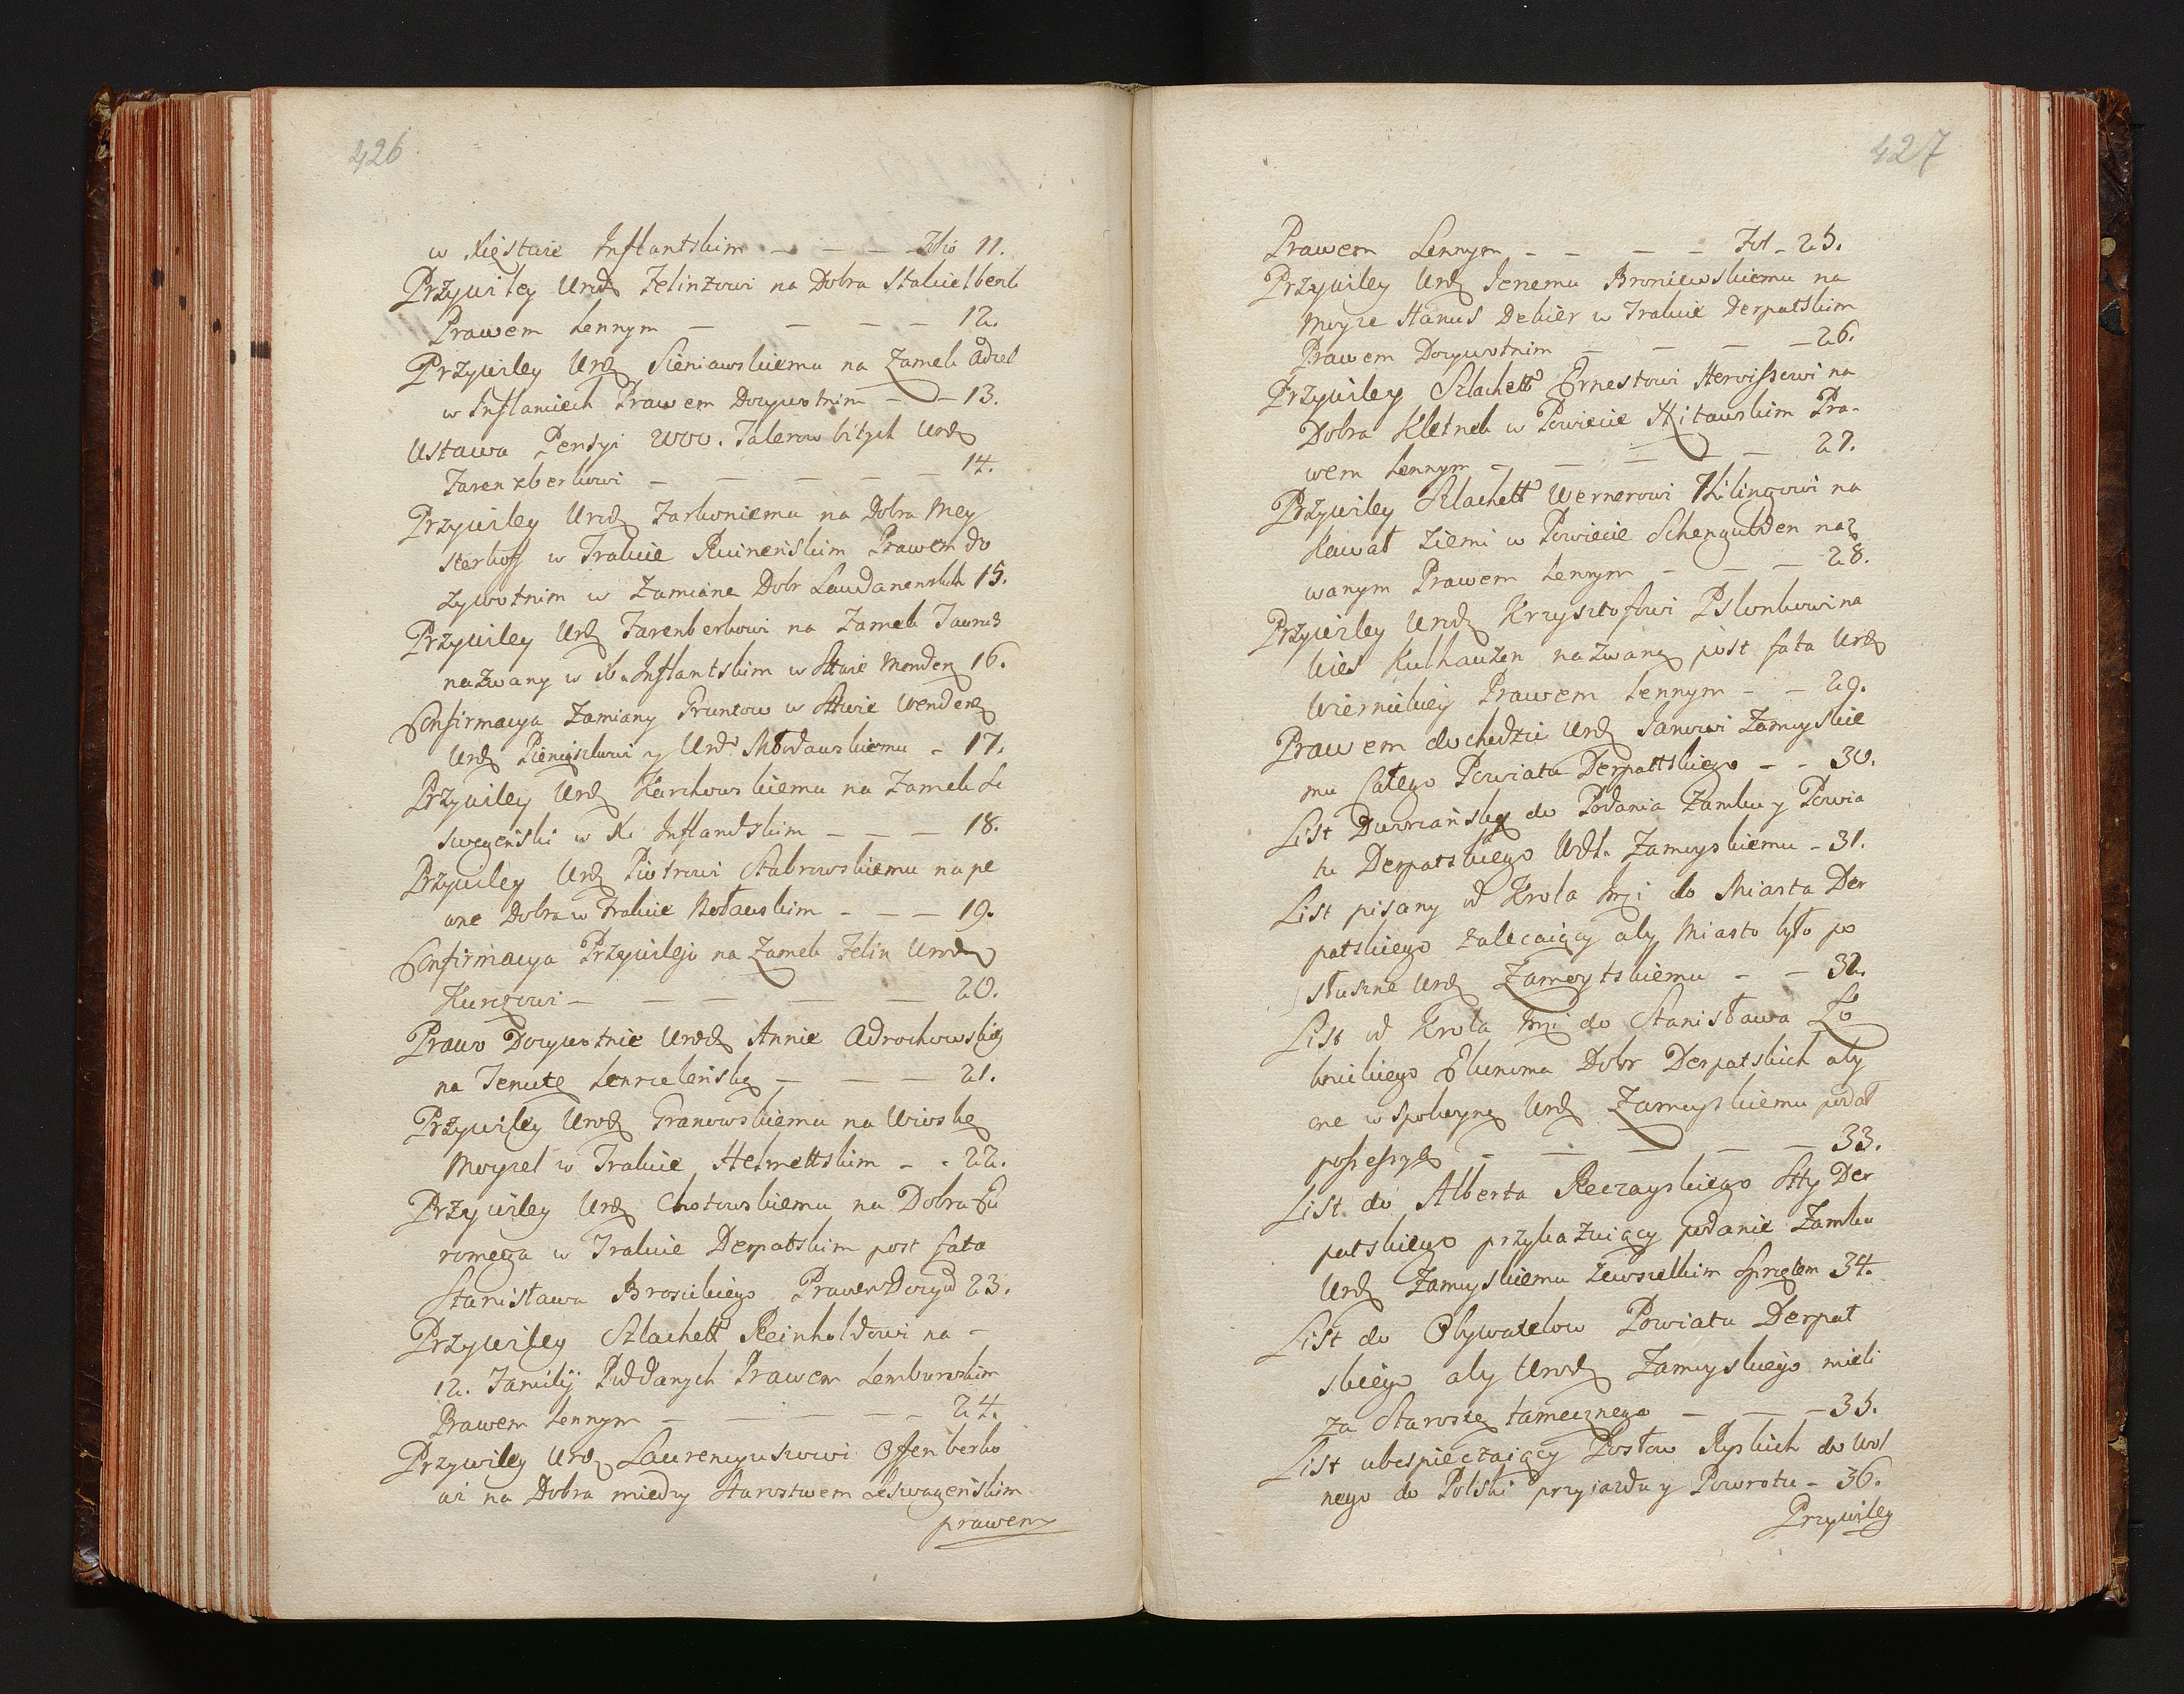 426
w Xięstwie Inflantskim - - - - Folio 11.
Przywiley Urodz Felinzowi na Dobra Stakielbenk
Prawem Lennym - - - - 12.
Przywiley Urdz Sieniawskiemu na Zamek Adzel
w Inflanciech Prawem Dożywotnim - - 13.
Ustawa Pensyi 2000. Talerow bitych Urdz
Farenzberkowi - - - - - 14.
Przywiley Urodz Farkoniemu na Dobra Mey
sterhoff w Trakcie Ruineńskim Prawem do
żywotnim w Zamiane Dobr Laudanenskich 15.
Przywiley Urdz Farenberkowi na Zamek
nazwany w X. Inflantskim w Sttwie Wenden 16.
Confirmacya Zamiany Gruntow w Sttwie Wenden
Urdz Pieniążkowi y Urd Młodawskiemu - 17.
Przywiley Urdz Karchowskiemu na Zamek Le
swegenski w X. Inflandskim - - - 18.
Przywiley Urdz Piotrowi Stabrowskiemu na pe
wne Dobra w Trakcie - - - 19.
Confirmacya Przywileju na Zamek Felin Urodz
Kurczowi - - - - - 20.
Prawo Dożywotnie Urodz Annie Odrochowskiey
na Tenutę Lenrzeleńską - - - 21.
Przywiley Urodz Granowskiemu na Wioskę
Moyzel w Trakcie Helmettskim - - 22.
Przywiley Urdz Chotowskiemu na Dobra Eu
romega w Trakcie Derpatskim post fata
Stanisława Brosickiego Prawem Dożyw 23.
Przywiley Szlachett Reinholdowi na -
12. Familij Poddanych Prawem Lemburskim
Prawem Lennym - - - - - 24.
Przywiley Urdz Laurencyuszowi Offenberko
wi na Dobra miedzy Starostwem Leswagenskim
prawem
427
Prawem Lennym - - - - Fol - 25.
Przywiley Urdz Jenemu Broniewskiemu na
Moyze Hanus Dekier w Trakcie Derpatskim
Prawem Dożywotnim - - - - 26.
Przywiley Szlachett Ernestowi Herwissowi na
Dobra Kletnek w Powiecie Mitawskim Pra-
wem Lennym - - - - - 27.
Przywiley Szlachett Wernerowi Kilingowi na
Kawał Ziemi w Powiecie Schengubden naz
wanym Prawem Lennym - - - 28.
Przywiley Urdz Krzysztofowi Pslonkowi na
wies Kulhauzen nazwaną post fata Urdz
Wiernickiey Prawem Lennym - - 29.
Prawem dochodzi Urdz Janowi Zamoyskie
mu Całego Powiatu Derpattskiego - - 30.
List Dworzański do Podania Zamku y Powia
tu Derpatskiego Wdt. Zamoyskiemu - 31.
List pisany od Krola Jmci do Miasta Der
patskiego zalecaiący aby Miasto było po
słuszne Urdz Zamoytskiemu - - 32.
List od Krola Jmci do Stanisława Lo
knickiego Ekonoma Dobr Derpatskich aby
one w spokoyną Urdz Zamoyskiemu podał
possessyą - - - - - 33.
List do Alberta Reczayskiego Stty Der
patskiego przykazuiący podanie Zamku
Urdz Zamoyskiemu zewszelkim sprzętem 34.
List do Obywatelow Powiatu Derpat
skiego aby Urodz Zamoyskiego mieli
za Starostę tamecznego - - - 35.
List ubespieczaiący Posłow Ryskich do Wol
nego do Polski przyiazdu y Powrotu - 36.
Przywiley